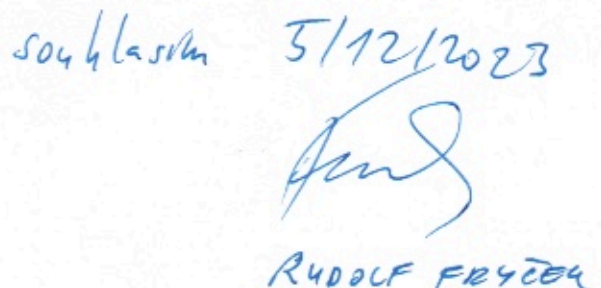 souhlasím 5/12/2023
RUDOLF FRYČEK